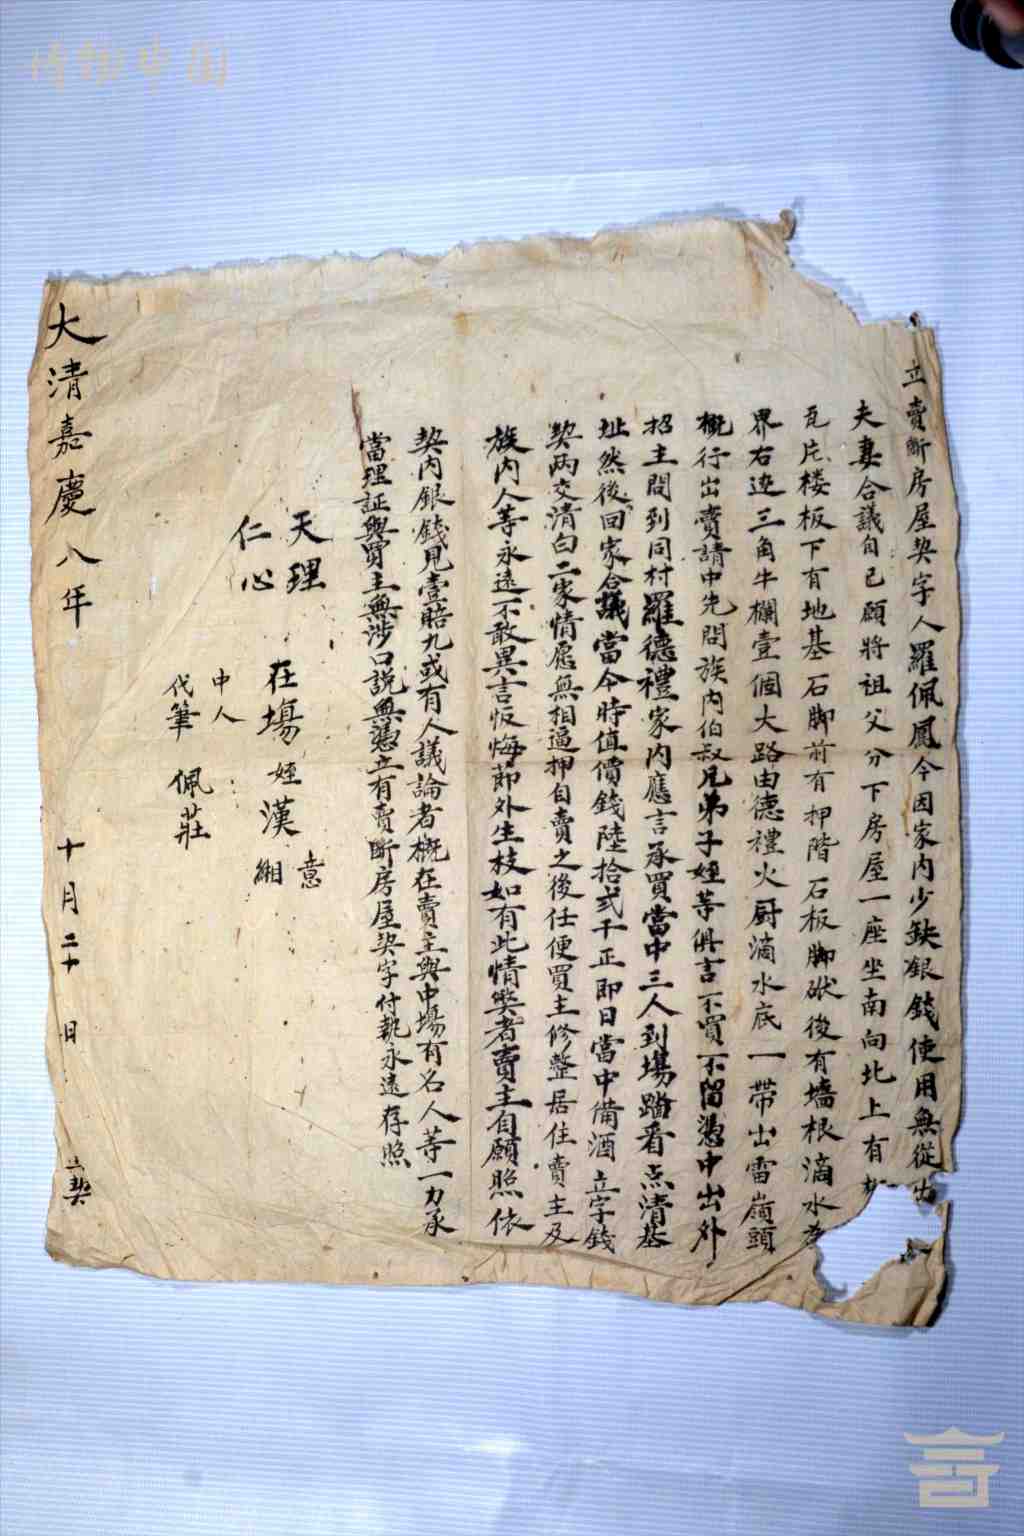 立賣斷房屋契字人羅佩鳳今因家内少缺銀錢使用無從出
夫妻合議自己願將祖父分下房屋一座坐南向北上有
瓦片楼板下有地基石脚前有押階石板脚砍後有墻根滴水為
界右边三角牛欄壹個大路由德禮火厨滴水底一帶出雷嶺頭
概行出賣請中先問族内伯叔兄弟子姪等俱言不買不留憑中出外
招主問到同村羅德禮家内應言承買當中三人到塲踏看点清基
址然後回家合議當今時值價錢陸拾弍千正即日當中備酒立字錢
契两交清白二家情愿無相逼押自賣之後任便買主修整居住賣主及
族内人等永遠不敢異言恢悔節外生枝如有此情獘者賣主自願照依
契内銀錢見壹賠九或有人議論者概在賣主與中塲有名人等一力承
當理証與買主無涉口說無憑立有賣斷房屋契字付執永遠存照
天理
仁心
在塲 姪漢 意
緗
中人
代筆 佩莊
大清嘉慶八年 十月二十日 立契
博物中国